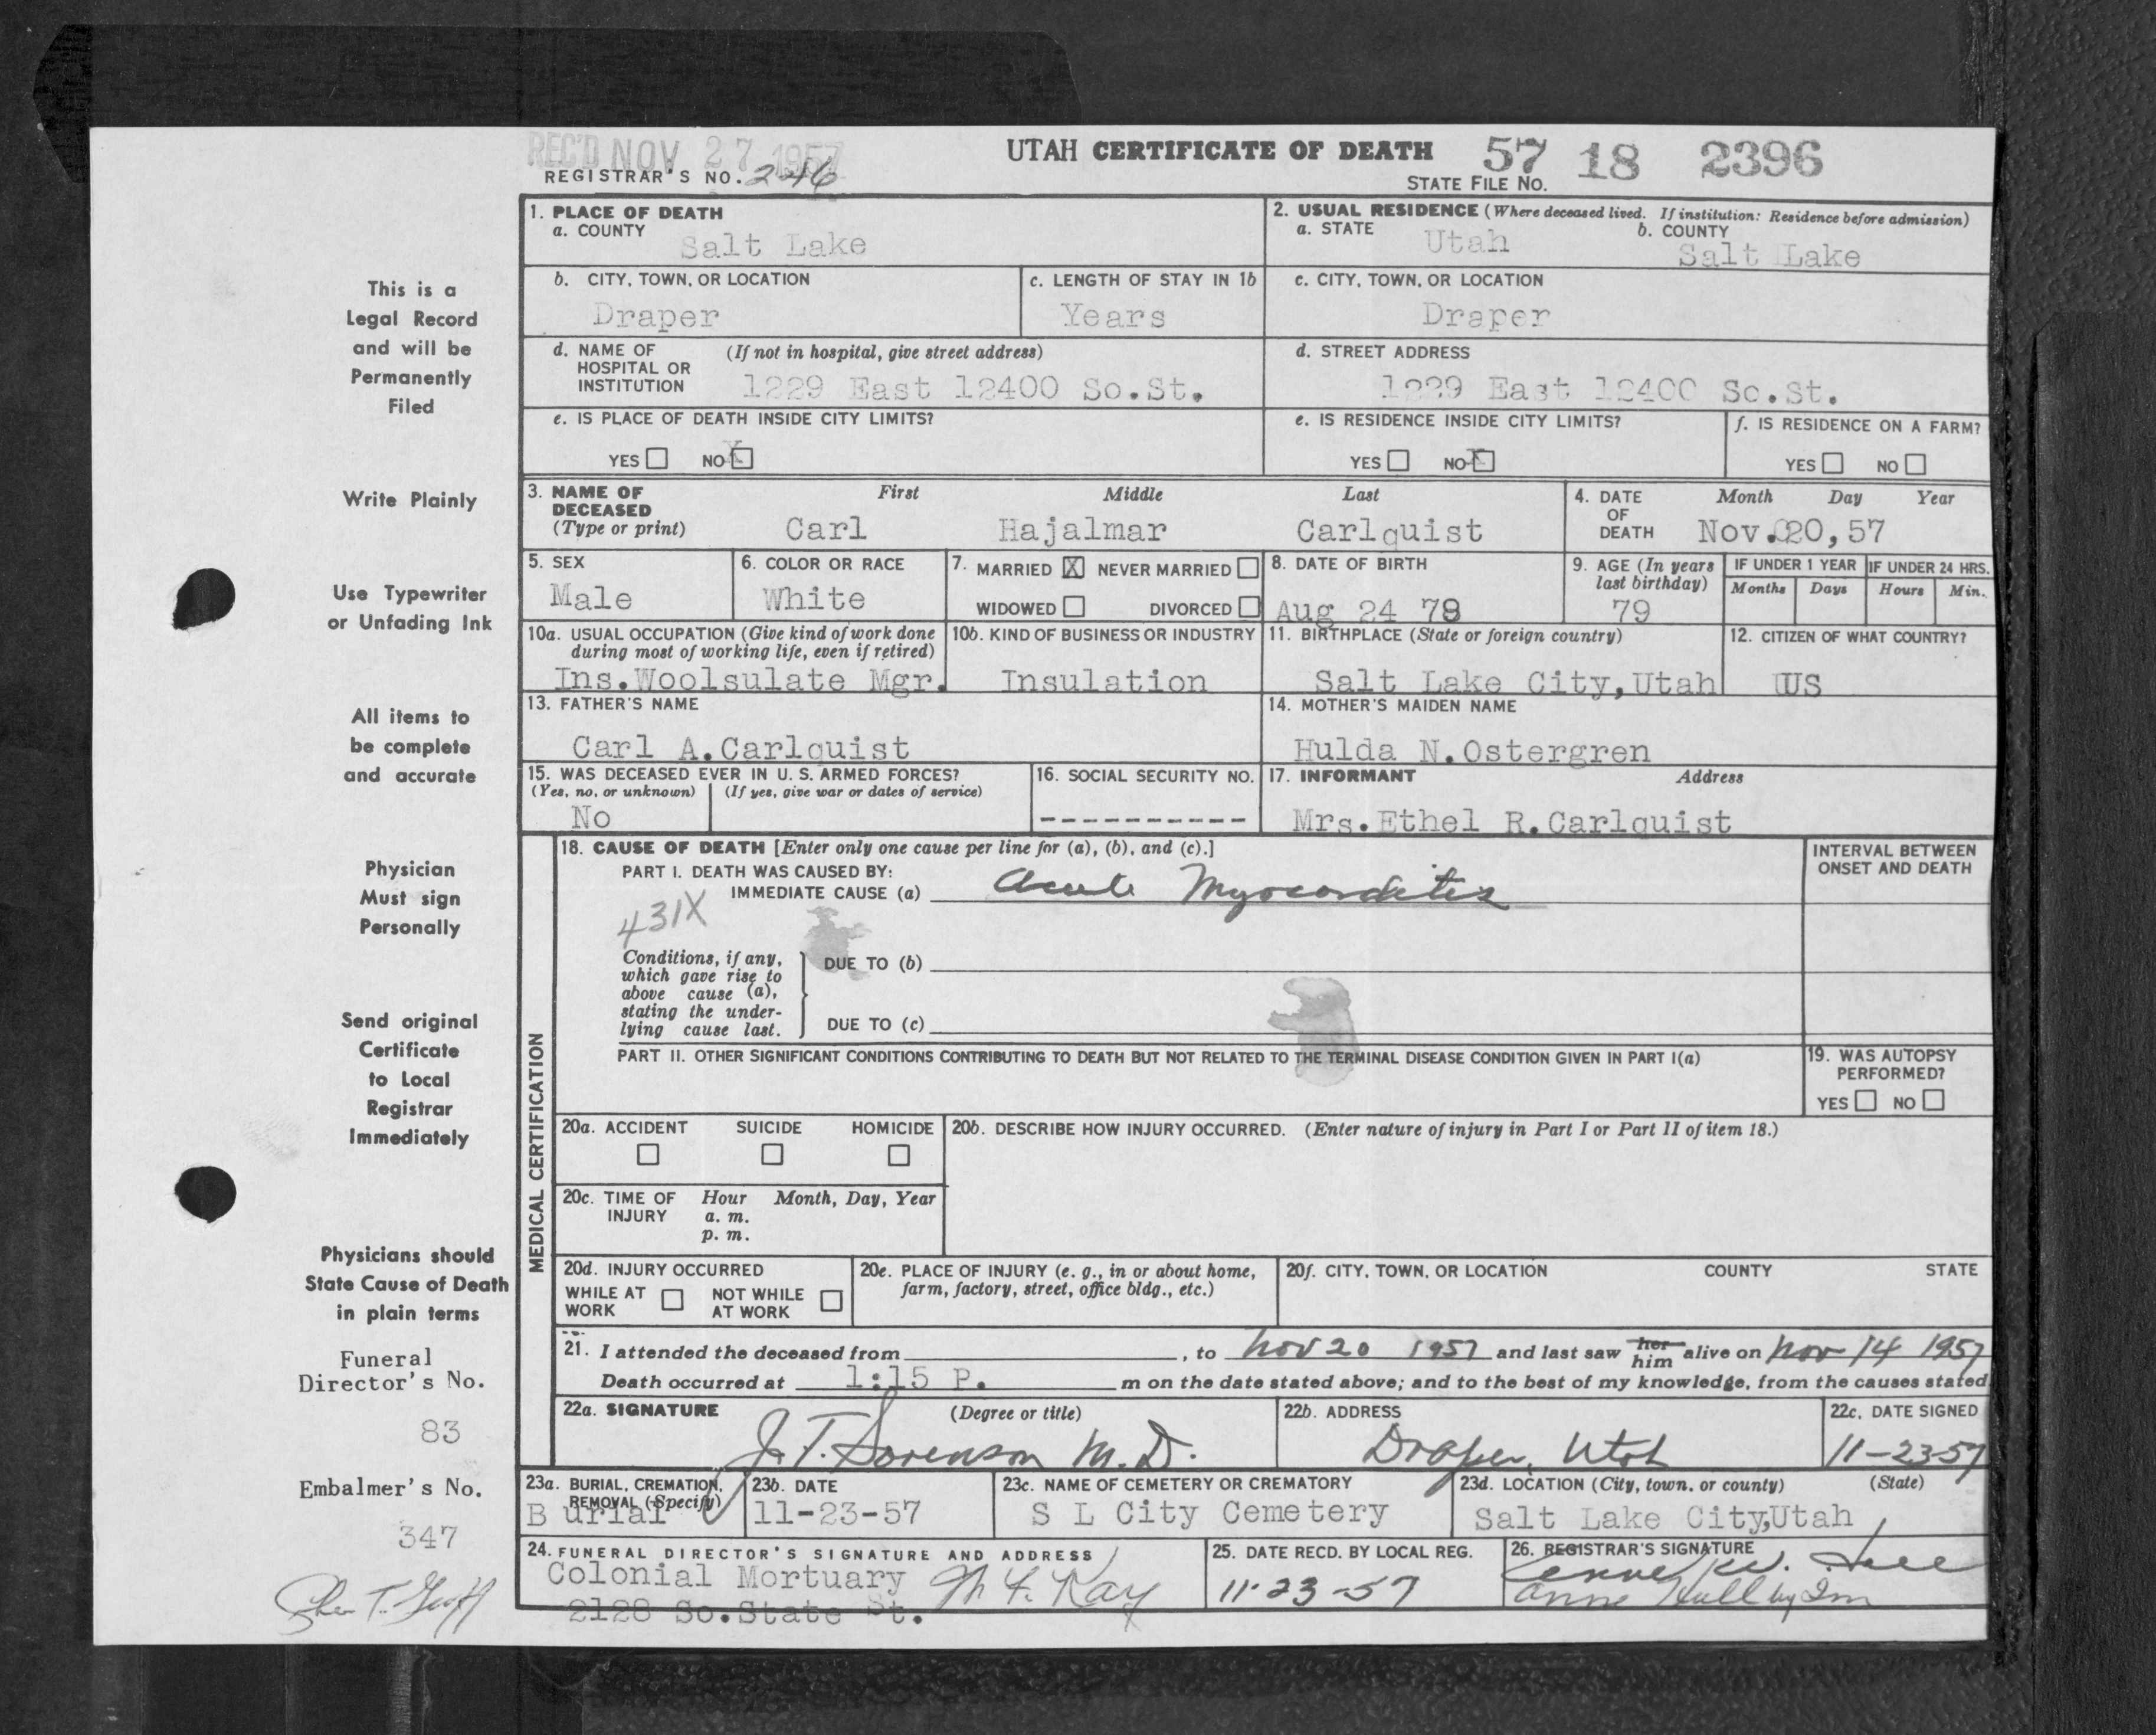 REC'D NOV 27 1957
UTAH CERTIFICATE OF DEATH 57 18 2396
REGISTRAR'S NO. 246
STATE FILE NO.
1. PLACE OF DEATH
a. COUNTY Salt Lake
2. USUAL RESIDENCE (Where deceased lived. If institution: Residence before admission)
a. STATE Utah b. COUNTY Salt Lake
b. CITY, TOWN, OR LOCATION Draper
c. LENGTH OF STAY IN 1b Years
c. CITY, TOWN, OR LOCATION Draper
d. NAME OF HOSPITAL OR INSTITUTION (If not in hospital, give street address)
1229 East 12400 So.St.
d. STREET ADDRESS
1229 East 12400 So.St.
e. IS PLACE OF DEATH INSIDE CITY LIMITS?
YES NO X
e. IS RESIDENCE INSIDE CITY LIMITS?
YES NO X
f. IS RESIDENCE ON A FARM?
YES NO
3. NAME OF DECEASED (Type or print)
First Middle Last
Carl Hajalmar Carlquist
4. DATE OF DEATH Month Day Year
Nov. 20, 57
5. SEX Male
6. COLOR OR RACE White
7. MARRIED X NEVER MARRIED
WIDOWED DIVORCED
8. DATE OF BIRTH Aug 24 78
9. AGE (In years last birthday) 79
IF UNDER 1 YEAR Months Days
IF UNDER 24 HRS. Hours Min.
10a. USUAL OCCUPATION (Give kind of work done during most of working life, even if retired)
Ins.Woolsulate Mgr.
10b. KIND OF BUSINESS OR INDUSTRY
Insulation
11. BIRTHPLACE (State or foreign country)
Salt Lake City,Utah
12. CITIZEN OF WHAT COUNTRY?
US
13. FATHER'S NAME
Carl A.Carlquist
14. MOTHER'S MAIDEN NAME
Hulda N.Ostergren
15. WAS DECEASED EVER IN U. S. ARMED FORCES?
(Yes, no, or unknown) (If yes, give war or dates of service)
No
16. SOCIAL SECURITY NO.
----------
17. INFORMANT Address
Mrs.Ethel R.Carlquist
MEDICAL CERTIFICATION
18. CAUSE OF DEATH [Enter only one cause per line for (a), (b), and (c).]
PART I. DEATH WAS CAUSED BY:
IMMEDIATE CAUSE (a) Acute Myocarditis
INTERVAL BETWEEN ONSET AND DEATH
431X
Conditions, if any, which gave rise to above cause (a), stating the underlying cause last.
DUE TO (b)
DUE TO (c)
PART II. OTHER SIGNIFICANT CONDITIONS CONTRIBUTING TO DEATH BUT NOT RELATED TO THE TERMINAL DISEASE CONDITION GIVEN IN PART I(a)
19. WAS AUTOPSY PERFORMED?
YES NO
20a. ACCIDENT SUICIDE HOMICIDE
20b. DESCRIBE HOW INJURY OCCURRED. (Enter nature of injury in Part I or Part II of item 18.)
20c. TIME OF INJURY Hour Month, Day, Year
a. m.
p. m.
20d. INJURY OCCURRED
WHILE AT WORK NOT WHILE AT WORK
20e. PLACE OF INJURY (e. g., in or about home, farm, factory, street, office bldg., etc.)
20f. CITY, TOWN, OR LOCATION COUNTY STATE
21. I attended the deceased from , to Nov 20 1957 and last saw her him alive on Nov 14 1957
Death occurred at 1:15 P. m on the date stated above; and to the best of my knowledge, from the causes stated
22a. SIGNATURE (Degree or title)
J. T. Sorenson M.D.
22b. ADDRESS
Draper, Utah
22c. DATE SIGNED
11-23-57
23a. BURIAL, CREMATION, REMOVAL (Specify)
Burial
23b. DATE
11-23-57
23c. NAME OF CEMETERY OR CREMATORY
S L City Cemetery
23d. LOCATION (City, town, or county) (State)
Salt Lake City,Utah
24. FUNERAL DIRECTOR'S SIGNATURE AND ADDRESS
Colonial Mortuary
2128 So.State St.
25. DATE RECD. BY LOCAL REG.
11-23-57
26. REGISTRAR'S SIGNATURE
This is a
Legal Record
and will be
Permanently
Filed
Write Plainly
Use Typewriter
or Unfading Ink
All items to
be complete
and accurate
Physician
Must sign
Personally
Send original
Certificate
to Local
Registrar
Immediately
Physicians should
State Cause of Death
in plain terms
Funeral
Director's No.
83
Embalmer's No.
347